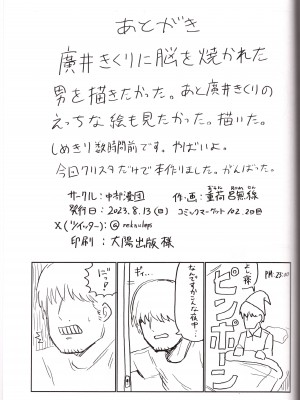 あとがき
廣井きくりに脳を焼かれた
男を描きたかった。あと廣井きくりの
えっちな絵も見たかった。描いた。
しめきり数時間前です。やばいよ。
今回クリスタだけで本作りました。がんばった。
サークル:中部漫団
作・画:重荷
発行日:2023.8.13(日)
コミックマーケット102. 2日目
X(ツイッター):
印刷:太陽出版 様
PM:23:00
よし寝
ピンポーン
なんですかこんな夜中…
ギィ…